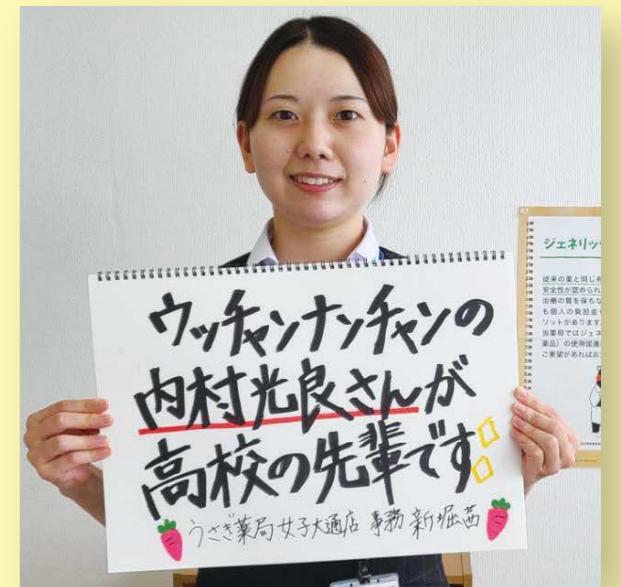 ウッチャンナンチャンの
内村光良さんが
高校の先輩です
うさぎ薬局女子大通店 事務 新堀茜
ジェネリッ
従来の薬と同じ
安全性が認められ
治療の質を保ちな
も個人の負担金
リットがあります
当薬局ではジェネ
薬品）の使用促進
ご要望があればお